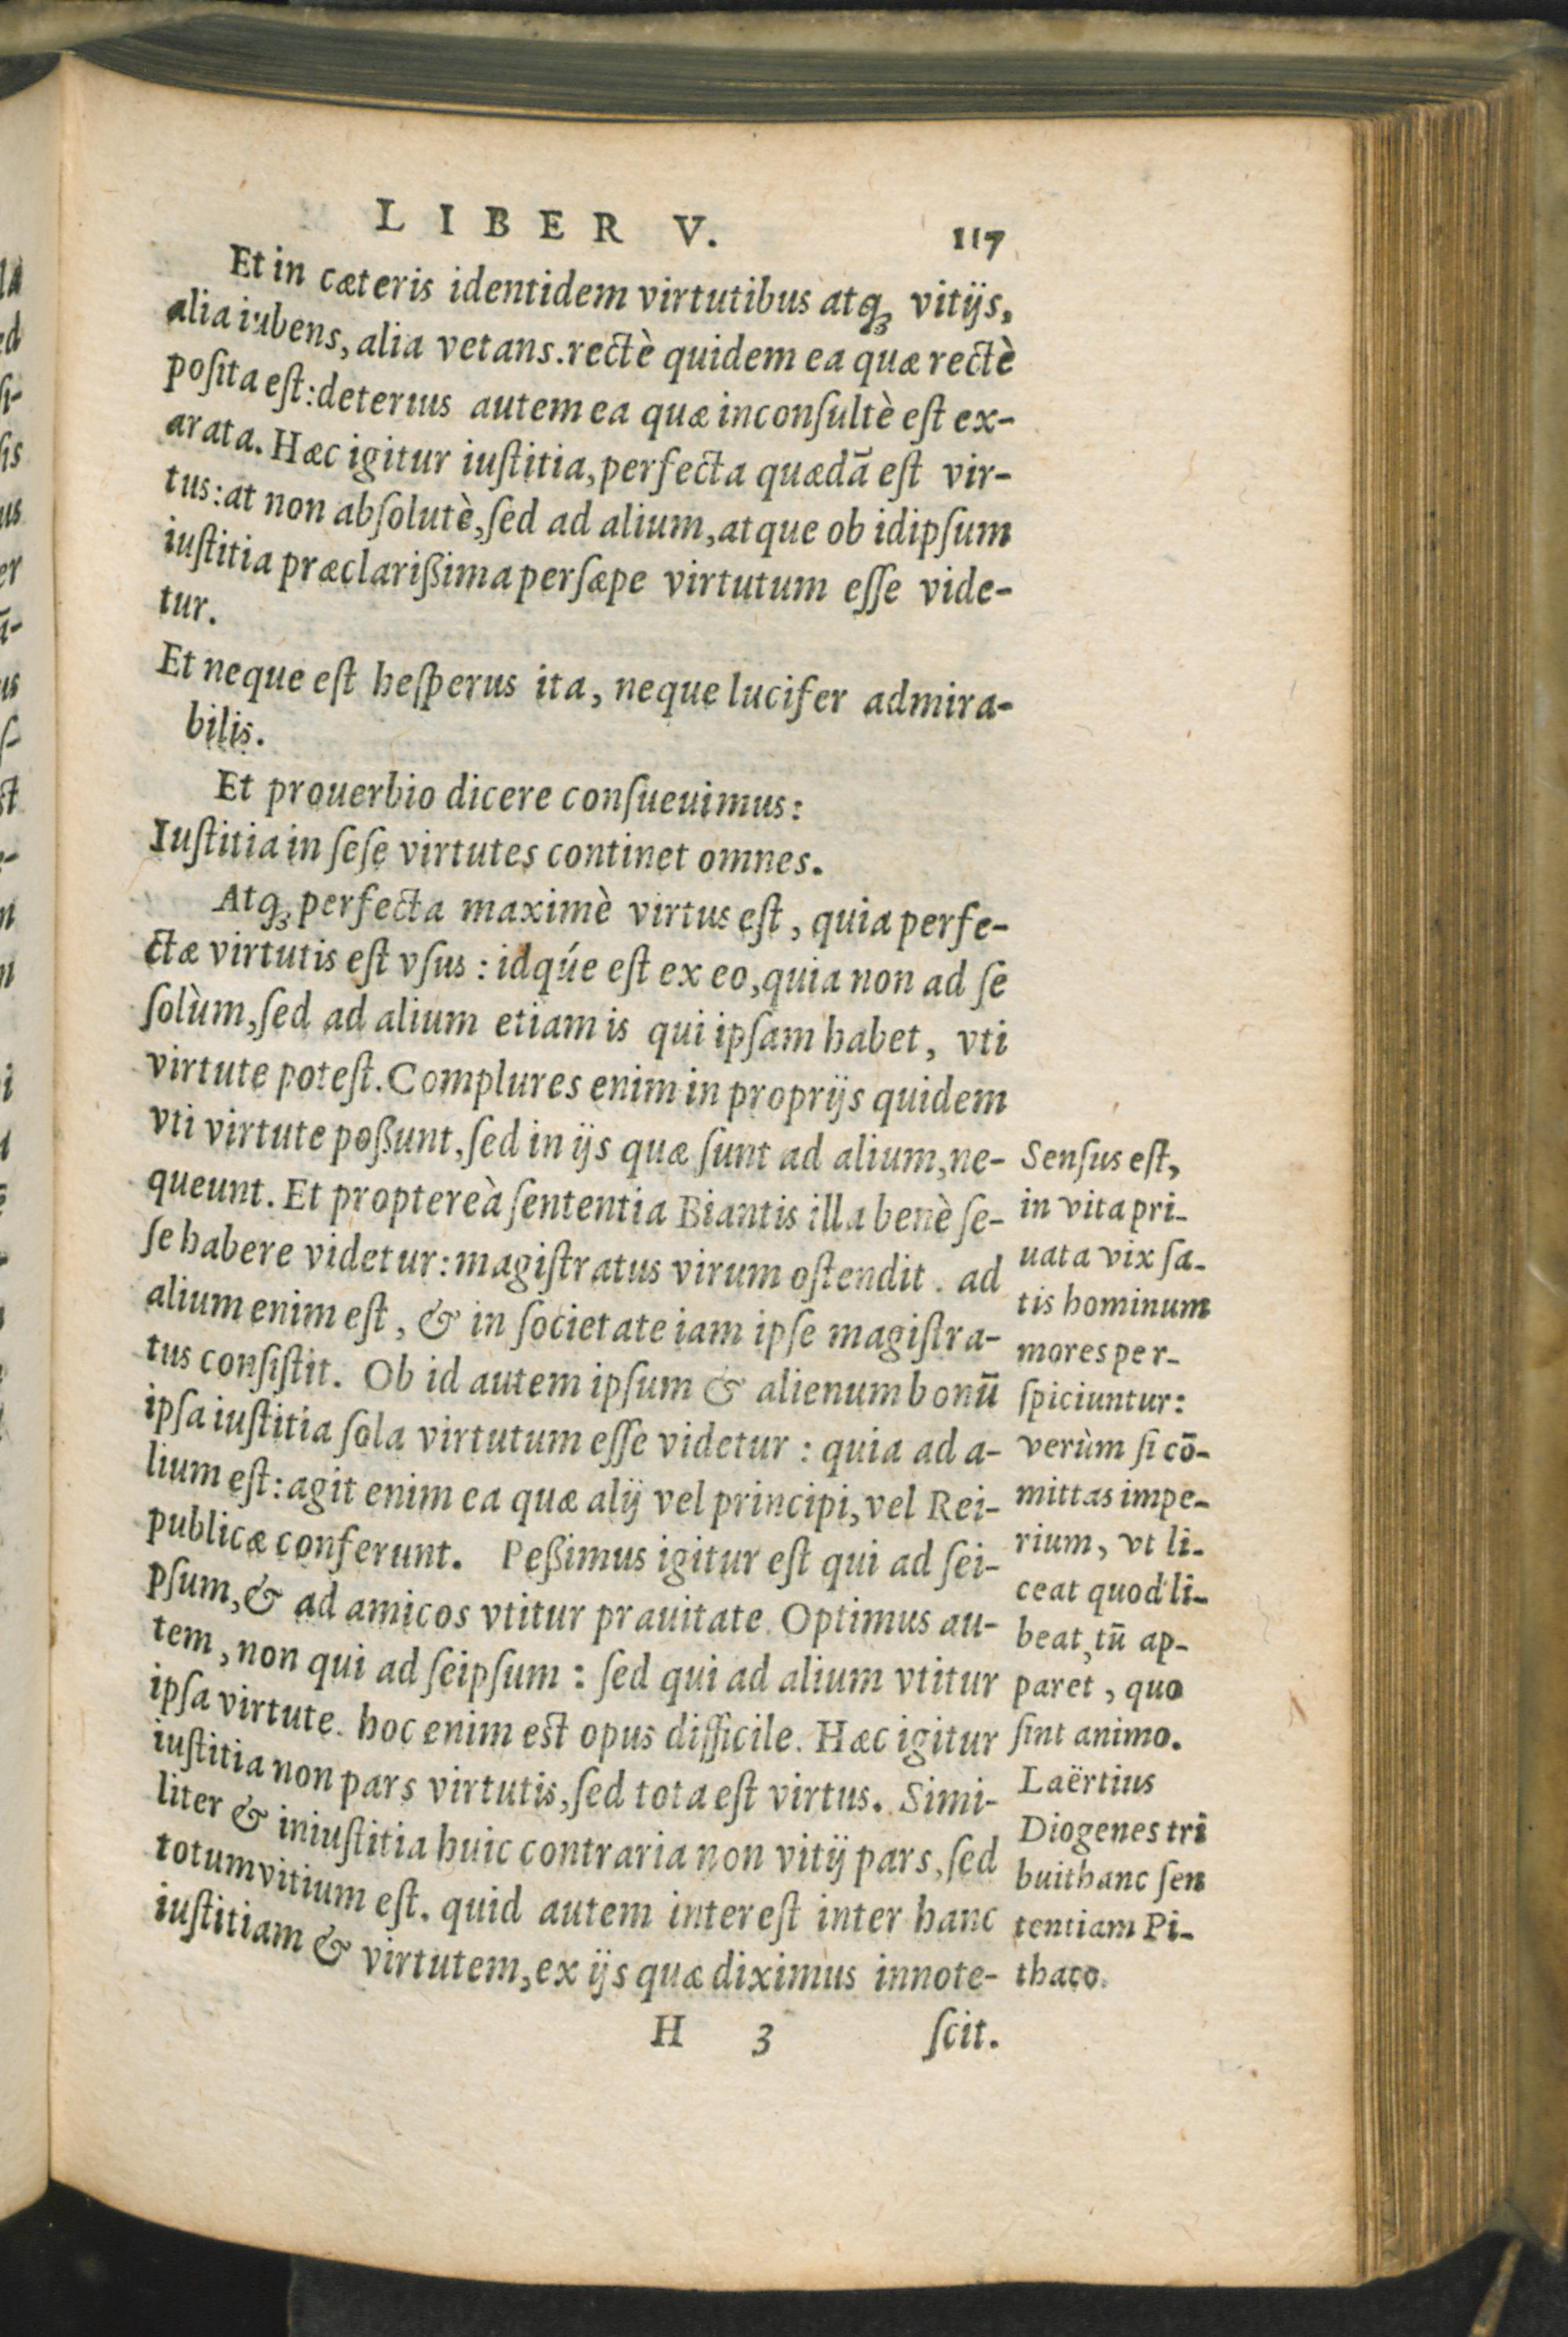 LIBER V. 117
Et in cæteris identidem virtutibus atq; vitijs,
alia iubens, alia vetans. rectè quidem ea quæ rectè
poſita eſt: deterius autem ea quæ inconſultè eſt ex-
arata. Hæc igitur iuſtitia, perfecta quædā eſt vir-
tus: at non abſolutè, ſed ad alium, atque ob idipſum
iuſtitia præclarißima perſæpe virtutum eſſe vide-
tur.
Et neque eſt heſperus ita, neque lucifer admira-
bilis.
Et prouerbio dicere conſueuimus:
Iuſtitia in ſeſe virtutes continet omnes.
Atq; perfecta maximè virtus eſt, quia perfe-
ctæ virtutis eſt vſus: idqúe eſt ex eo, quia non ad ſe
ſolùm, ſed ad alium etiam is qui ipſam habet, vti
virtute poteſt. Complures enim in proprijs quidem
vti virtute poßunt, ſed in ijs quæ ſunt ad alium, ne-
queunt. Et proptereà ſententia Biantis illa benè ſe-
ſe habere videtur: magiſtratus virum oſtendit. ad
alium enim eſt, & in ſocietate iam ipſe magiſtra-
tus conſiſtit. Ob id autem ipſum & alienum bonū
ipſa iuſtitia ſola virtutum eſſe videtur: quia ad a-
lium eſt: agit enim ea quæ alij vel principi, vel Rei-
publicæ conferunt. Peßimus igitur eſt qui ad ſei-
pſum, & ad amicos vtitur prauitate. Optimus au-
tem, non qui ad ſeipſum: ſed qui ad alium vtitur
ipſa virtute. hoc enim eſt opus difficile. Hæc igitur
iuſtitia non pars virtutis, ſed tota eſt virtus. Simi-
liter & iniuſtitia huic contraria non vitij pars, ſed
totum vitium eſt. quid autem intereſt inter hanc
iuſtitiam & virtutem, ex ijs quæ diximus innote-
H 3 ſcit.
Senſus eſt,
in vita pri-
uata vix ſa-
tis hominum
mores per-
ſpiciuntur:
verùm ſi cō-
mittas impe-
rium, vt li-
ceat quod li-
beat, tū ap-
paret, quo
ſint animo.
Laërtius
Diogenes tri
buit hanc ſen
tentiam Pi-
thaco.